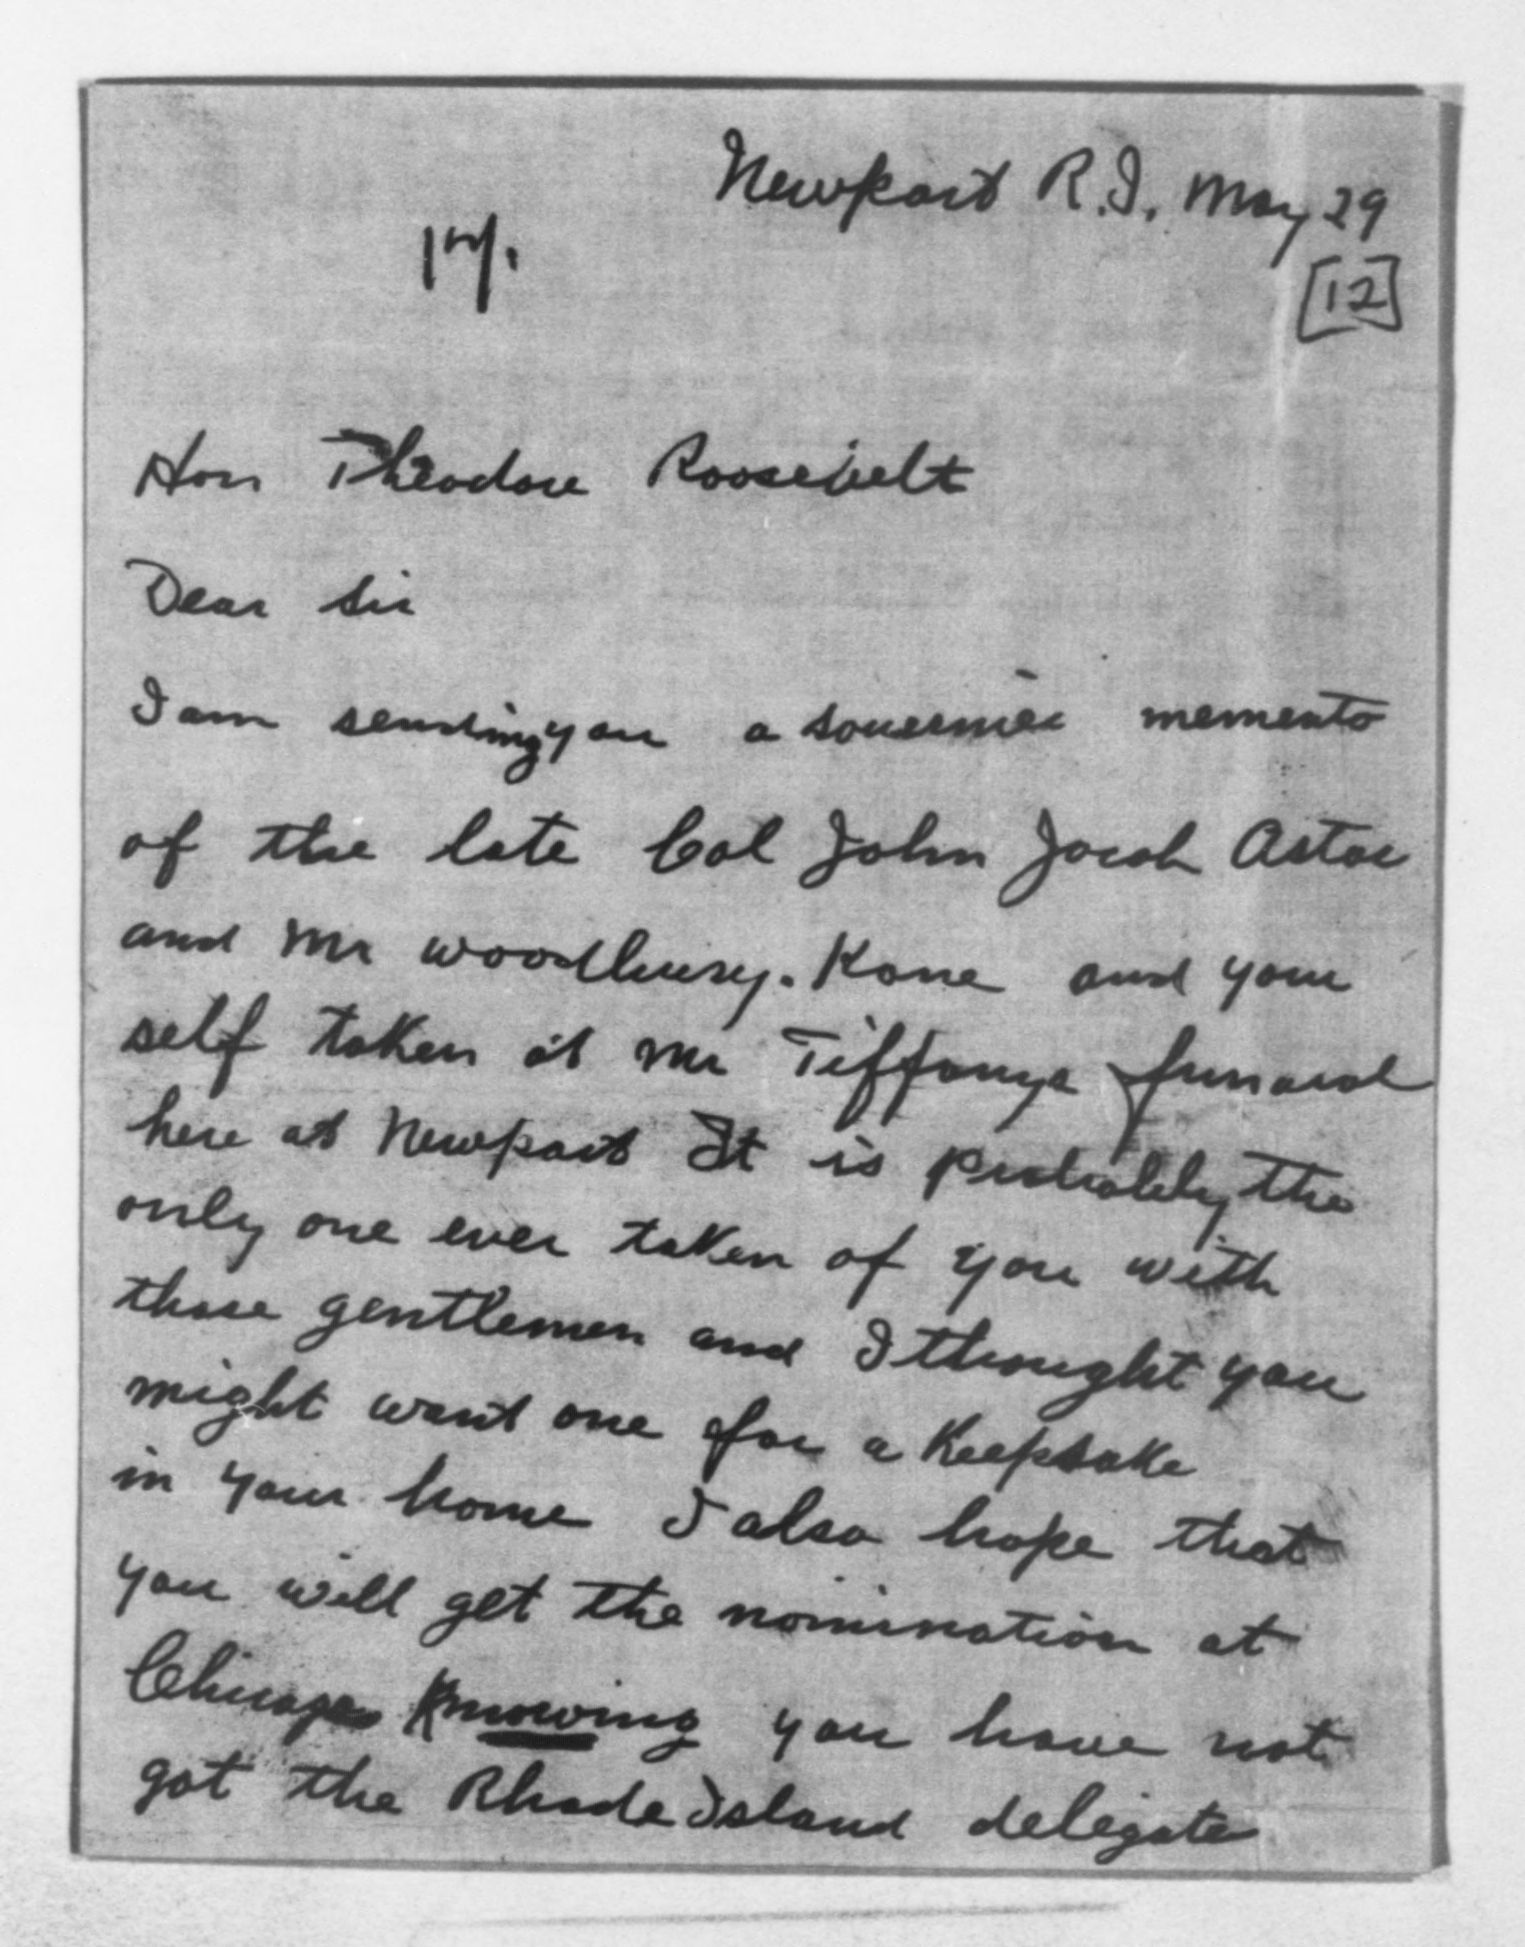 Newport R.I. May 29
[12]
Hon Theodore Roosevelt
Dear Sir
I am sending you a souvenier memento
of the late Col John Jacob Astor
and Mr Woodbury. Kane and your
self taken at Mr Tiffanys funaral
here at Newport It is probably the
only one ever taken of you with
those gentlemen and I thought you
might want one for a Keepsake
in your home I also hope that
you will get the nomination at
Chicago Knowing you have not
got the Rhode Island delegate